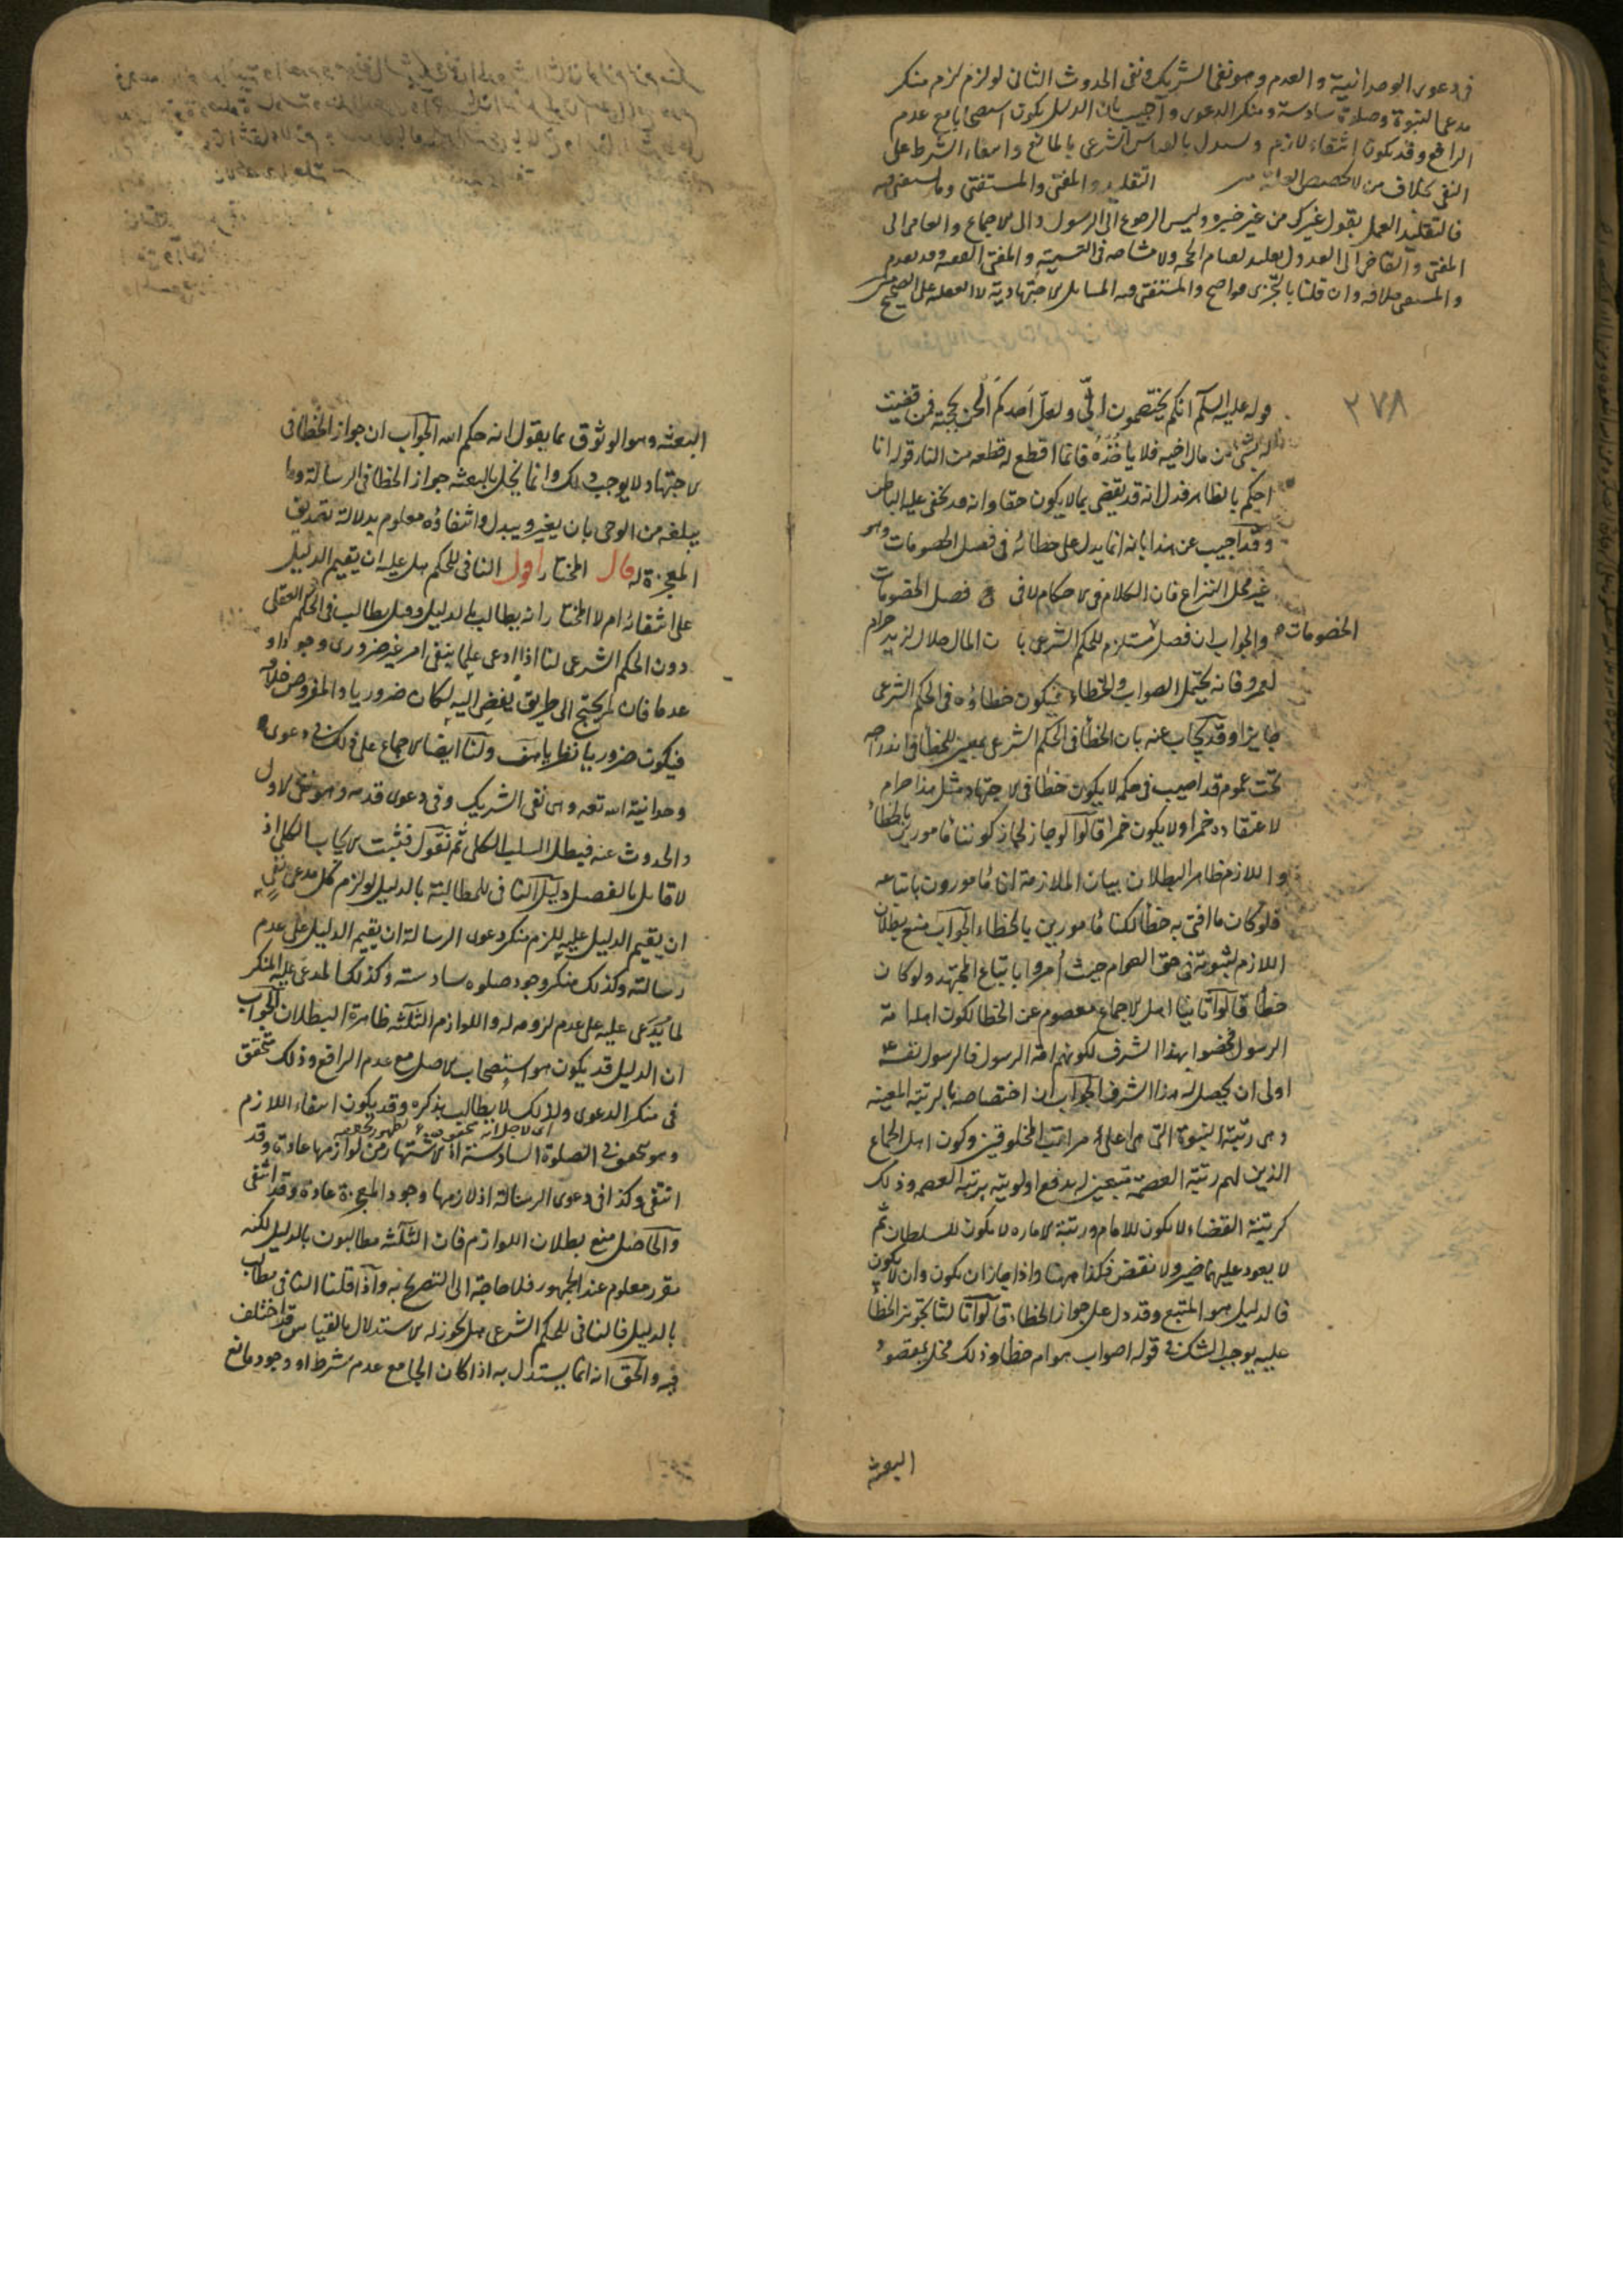 في دعوى الوحدانية والعدم وهو نفي الشريك ونفي الحدوث الثاني لو لزم لزم منكر
مدعي النبوة وصلاة سادسة ومنكر الدعوى وأجيب بان الدليل يكون استصحابا مع عدم
الرافع وقد يكون انتفاء لازم ويستدل بالقياس الشرعي بالمانع وانتفاء الشرط على
النفي بخلاف من لا يخصص العلة التقليد والمفتي والمستفتي وما يستفتى فيه
فالتقليد العمل بقول غيرك من غير حجة وليس الرجوع الى الرسول والى الاجماع والعامي الى
المفتي والقاضي الى العدول بتقليد لقيام الحجة ولا مشاحة في التسمية والمفتي الفقيه وقد تقدم
والمستفتي خلافه وان قلنا بالتجزي فواضح والمستفتى فيه المسايل الاجتهادية لا العقلية على الصحيح
٢٧٨
قوله عليه السلم انكم يختصمون الي ولعل احدكم الحن بحجته فمن قضيت
له بشئ من مال اخيه فلا ياخذه فانما اقطع له قطعة من النار قوله انا
احكم بالظاهر فدل انه قد يقضي بما لا يكون حقا وانه قد يخفى عليه الباطن
وقد اجيب عن هذا بانه انما يدل على خطائه في فصل الخصومات وهو
غير محل النزاع فان الكلام في الاحكام لا في فصل الخصومات
الخصومات
والجواب ان فصل مستلزم للحكم الشرعي با ن المال حلال لزيد حرام
لعمرو فانه يحتمل الصواب والخطاء فيكون خطاؤه في الحكم الشرعي
جايزا وقد يجاب عنه بان الخطأ في الحكم الشرعي بمعنى الخطأ في اندراجه
تحت عموم قد اصيب في حكمه لا يكون خطأ في الاجتهاد مثل هذا حرام
لاعتقاده خمرا ولا يكون خمرا قالوا لو جاز لجاز كوننا مامورين بالخطاء
واللازم ظاهر البطلان بيان الملازمة انا مامورون باتباعه
فلو كان ما افتى به خطأ لكنا مامورين بالخطاء الجواب منع بطلان
اللازم لثبوته في حق العوام حيث أمروا باتباع المجتهد ولو كان
خطأ قالوا ثانيا اهل الاجماع معصوم عن الخطا لكون اهله امة
الرسول فخصوا بهذا الشرف لكونهم امة الرسول فالرسول نفسه
اولى ان يحصل له هذا الشرف الجواب ان اختصاصه بالرتبة المعينة
وهي رتبة النبوة التي هي اعلى مراتب المخلوقين وكون اهل الاجماع
الذين لهم رتبة العصمة متبعين له يدفع اولويته برتبة العصمة وذلك
كرتبة القضاء لا يكون للامام ورتبة الامارة لا يكون للسلطان ثم
لا يعود عليهما ضير ولا نقض فكذا ههنا واذا جاز ان يكون وان لا يكون
فالدليل هو المتبع وقد دل على جواز الخطاء قالوا ثالثا تجويز الخطأ
عليه يوجب الشك في قوله اصواب هو ام خطأ وذلك مخل بمقصود
البعثة
البعثة وهو الوثوق بما يقول انه حكم الله الجواب ان جواز الخطأ في
الاجتهاد لا يوجب ذلك وانما يخل بالبعثة جواز الخطا في الرسالة وما
يبلغه من الوحي بان يغير ويبدل وانتفاؤه معلوم بدلالة تصديق
المعجزة له قال المختار اقول النافي للحكم هل عليه ان يقيم الدليل
على انتفائه ام لا المختار انه يطالب بالدليل وقيل يطالب في الحكم العقلي
دون الحكم الشرعي لنا اذا ادعى علما بنفي امر غير ضروري وجودا او
عدما فان لم يحتج الى طريق يفضي اليه لكان ضروريا والمفروض خلافه
فيكون ضروريا نظريا هف ولنا ايضا الاجماع على ذلك في دعوى
وحدانية الله تعه وهي نفي الشريك وفي دعوى قدمه وهو نفي الاول
والحدوث عنه فيبطل السلب الكلي ثم نقول فثبت الايجاب الكلي اذ
لا قايل بالفصل دليل النافي للمطالبة بالدليل لو لزم كل مدعي نفي
ان يقيم الدليل عليه للزم منكر دعوى الرسالة ان يقيم الدليل على عدم
رسالته وكذلك منكر وجود صلوة سادسة وكذلك المدعى عليه المنكر
لما يدعى عليه على عدم لزومه له واللوازم الثلثة ظاهرة البطلان الجواب
ان الدليل قد يكون هو استصحاب الاصل مع عدم الرافع وذلك متحقق
في منكر الدعوى ولذلك لا يطالب بذكره وقد يكون انتفاء اللازم
وهو متحقق في الصلوة السادسة اذ الاشتهار من لوازمها عادة وقد
انتفى وكذا في دعوى الرسالة اذ لازمها وجود المعجزة عادة وقد انتفى
والحاصل منع بطلان اللوازم فان الثلثة مطالبون بالدليل لكنه
مقرر معلوم عند الجمهور فلا حاجة الى التصريح به واذا قلنا النافي يطالب
بالدليل فالنافي للحكم الشرعي هل يجوز له الاستدلال بالقياس قد اختلف
فيه والحق انه انما يستدل به اذا كان الجامع عدم شرط او وجود مانع